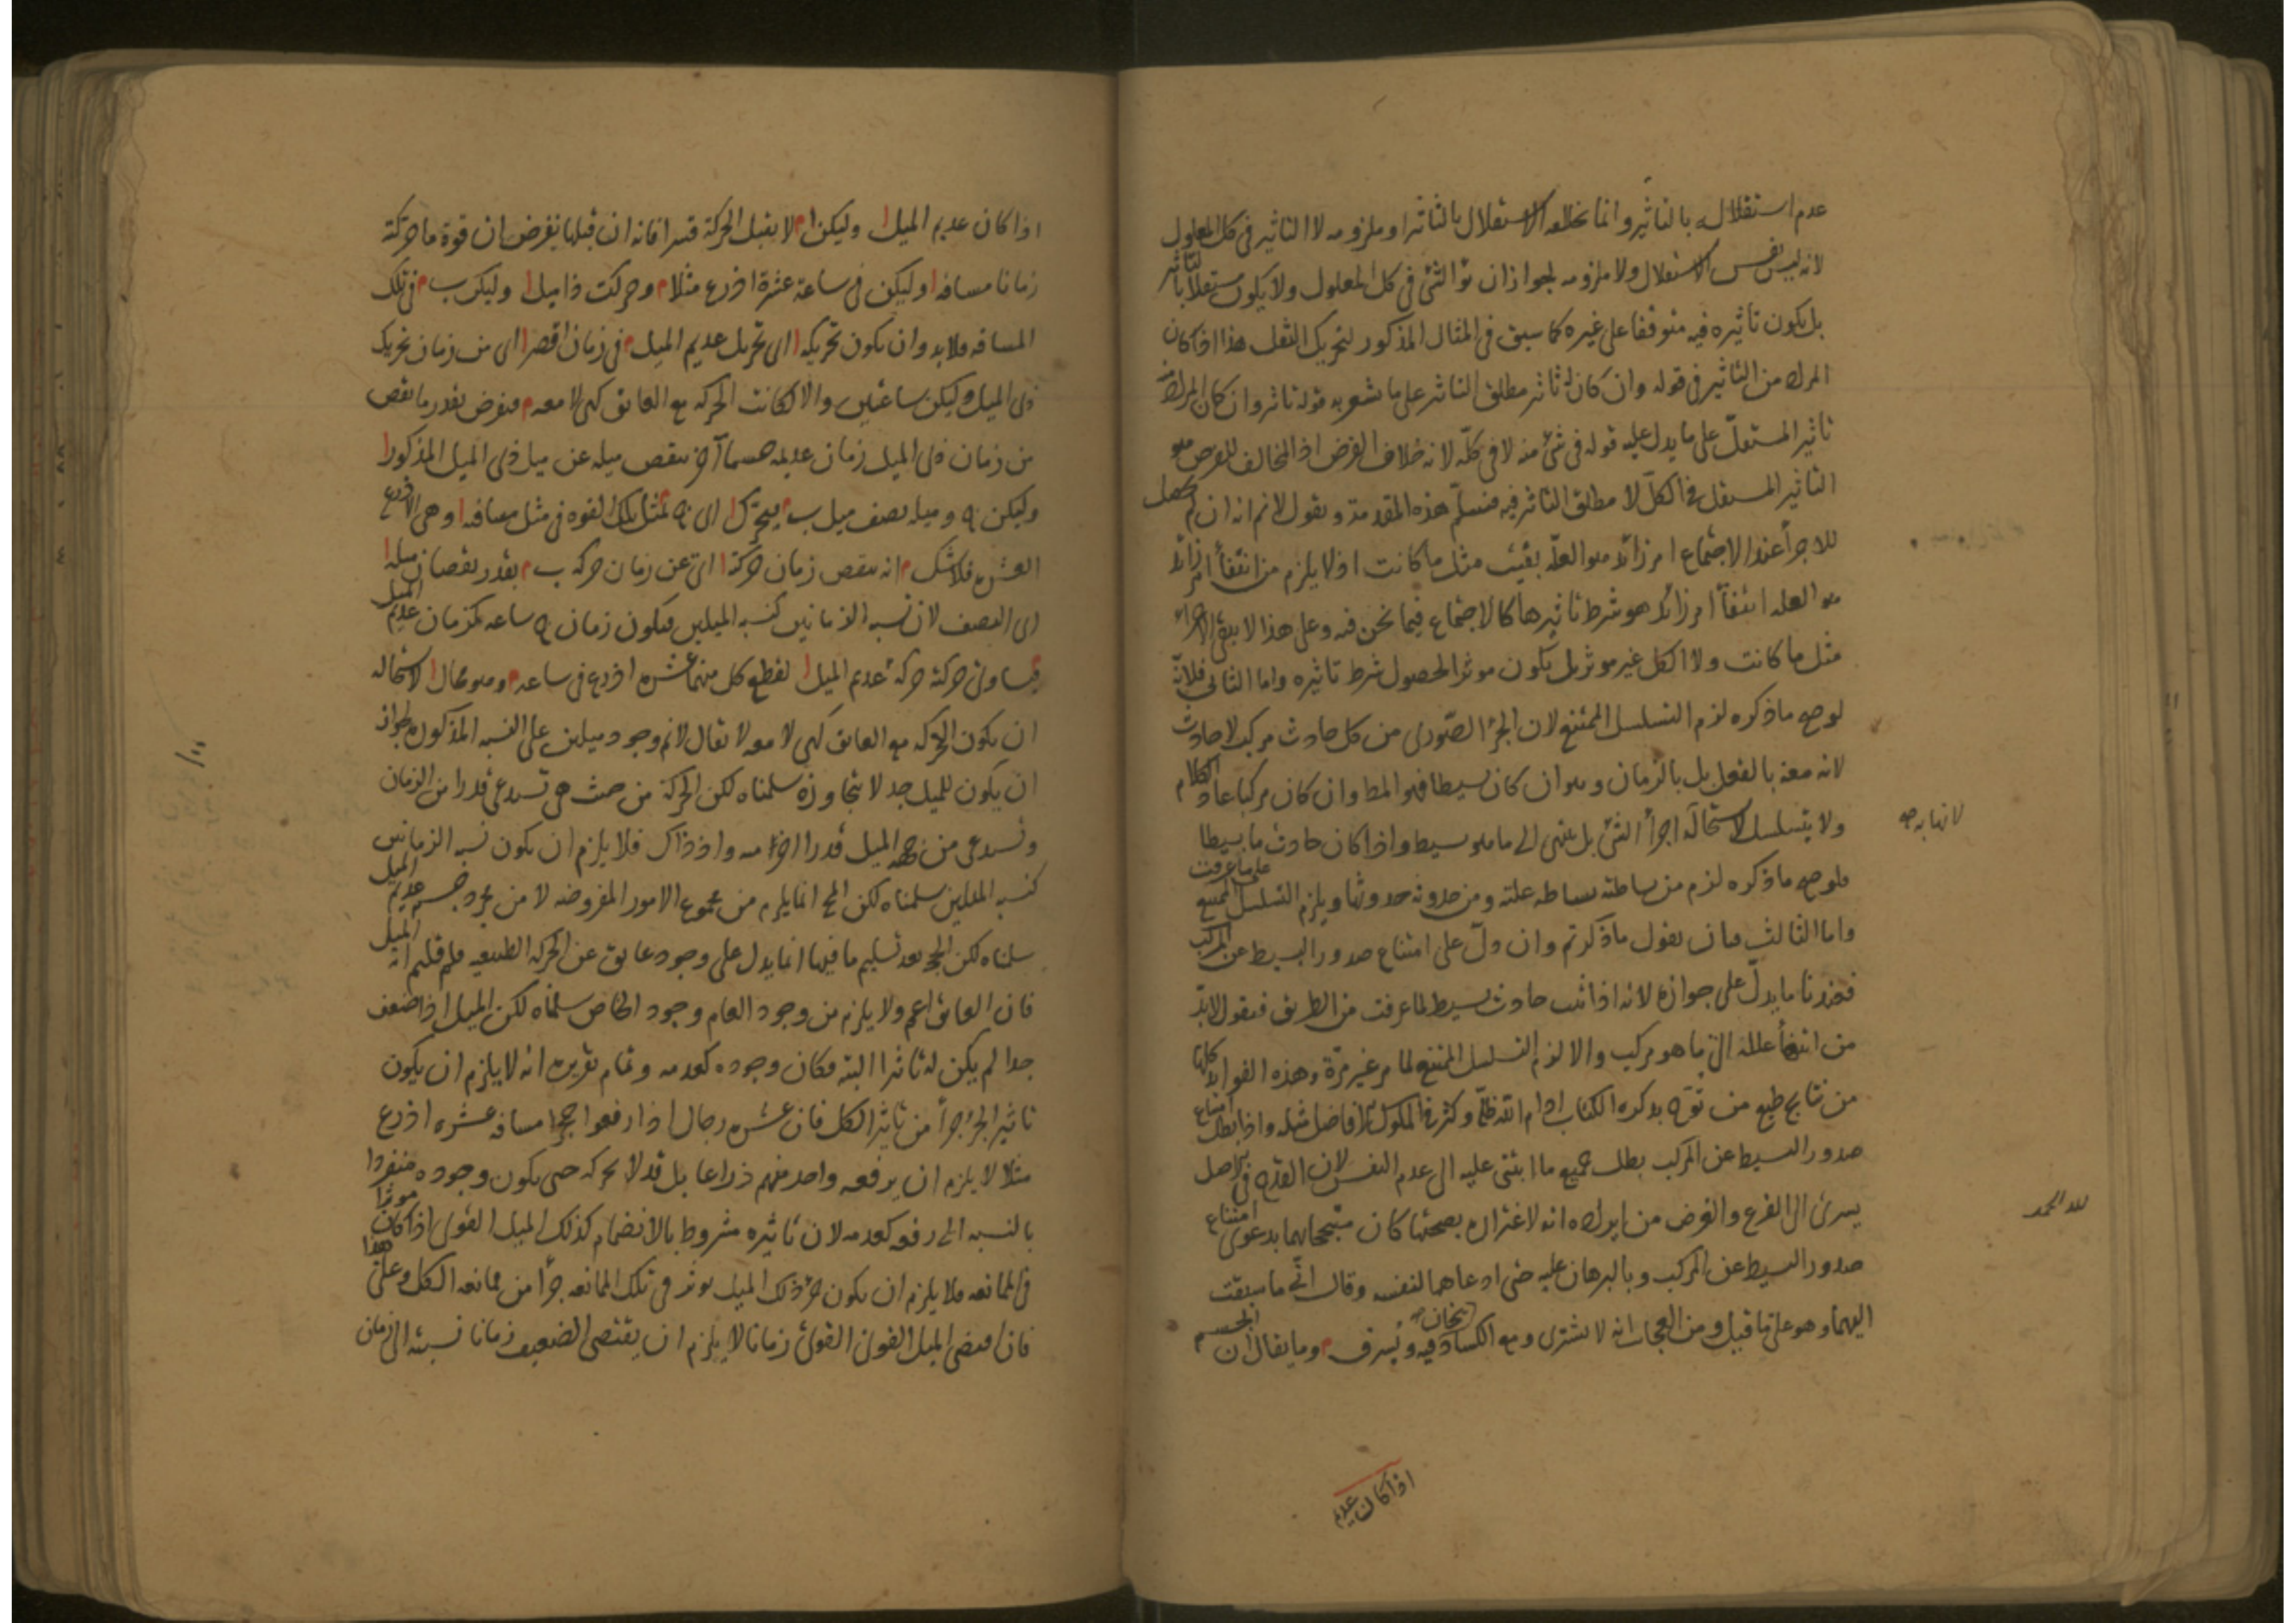 عدم استقلاله بالتاثير وانما نخلفه الاستقلال بالتاثير او ملزومه لا التاثير فى كل المعلول
لانه ليس نفس الاستقلال ولا ملزومه لجواز ان يؤثر الشئ فى كل المعلول ولا يكون مستقلا بالتاثير
بل يكون تاثيره فيه متوقفا على غيره كما سبق فى المثال المذكور لتحريك الثقل هذا اذا كان
المراد من التاثير فى قوله وان كان له تاثير مطلق التاثير على ما يشعر به قوله تاثير وان كان المراد منه
تاثير المستقل على ما يدل عليه قوله فى شئ منه لا فى كله لانه خلاف الفرض اذ المخالف للفرض هو
التاثير المستقل فى الكل لا مطلق التاثير فيه فنسلم هذه المقدمة ونقول لانم انه ان لم يحصل
للاجزأ عند الاجتماع امر زائد هو العلة بقيت مثل ما كانت اذ لا يلزم من انتفأ امر زائد
هو العله انتفأ امر زائد هو شرط تاثيرها كالاجتماع فيما نحن فيه وعلى هذا لا يبقى الاجزاء
مثل ما كانت ولا الكل غير موثر بل يكون موثرا لحصول شرط تاثيره واما الثانى فلانه
لو صح ما ذكره لزم التسلسل الممتنع لان الجزأ الصورى من كل حادث مركب لا حادث
لانه معه بالفعل بل بالزمان وهو ان كان بسيطا فهو المط وان كان مركبا عاد الكلام
ولا يتسلسل لاستحالة اجزأ الشئ بل ينتهى الى ما هو بسيط واذا كان حادث ما بسيطا
لا نهاية صح
فلو صح ما ذكره لزم من بساطته بساطه علته ومن حدوثه حدوثها ويلزم التسلسل الممتنع على ما عرفت
واما الثالث فبان نقول ما ذكرتم وان دل على امتناع صدور البسيط عن المركب
فعندنا ما يدل على جوازه لانه اذا ثبت حادث بسيط لما عرفت من الطريق فنقول لابد
من انتهأ علله الى ما هو مركب والا لزم التسلسل الممتنع لما مر غير مرة وهذه الفوائد كلها
من نتايج طبع من نوه بذكره الكتاب ادام الله ظله وكثر فى الملوك الافاضل مثله واذا بطل امتناع
صدور البسيط عن المركب بطل جميع ما ابتنى عليه الى عدم النفس لان القدح فى الاصل
يسرى الى الفرع والغرض من ايراده انه لاغتراره بصحتها كان متبجحا بهما بدعوى امتناع
لله الحمد
صدور البسيط عن المركب وبالبرهان عليه حتى ادعاهما لنفسه وقال انى ما سبقت
اليهما وهو على ما قيل ومن العجائب انه لا يشترى ومع الكساد فيه يخان ويسرق وما يقال ان الجسم
اذا كان عديم
اذا كان عديم الميل ا وليكن ا م لا يقبل الحركة قسرا فانه ان قبلها نفرض ان قوة ما حركته
زمانا مسافه ا وليكن فى ساعة عشرة اذرع مثلا م وحركت ذا ميل ا وليكن ب م فى تلك
المسافه فلابد وان يكون تحريكه ا اى تحريك عديم الميل م فى زمان اقصر ا اى من زمان تحريك
ذى الميل وليكن ساعتين والا لكانت الحركه مع العائق كهى لا معه م فنفرض بقدر ما نقص
من زمان ذى الميل زمان عديمه جسما آخر ينقص ميله عن ميل ذى الميل المذكور ا
وليكن ج وميله نصف ميل ب م يتحرك ا اى ج م بمثل تلك القوه فى مثل مسافته ا وهى الاذرع
العشره فلا شك م انه ينقص زمان حركته ا اى عن زمان حركه ب م بقدر نقصان ميله ا
اى النصف لان نسبه الزمانين كنسبه الميلين فيكون زمان ج ساعه كزمان عديم الميل
م فيساوى حركته حركة عديم الميل ا لقطع كل منهما عشره اذرع فى ساعه م وهو محال ا لاستحاله
ان يكون الحركه مع العائق كهى لا معه لا يقال لانم وجود ميلين على النسبه المذكوره لجواز
ان يكون للميل حد لا يتجاوزه سلمناه لكن الحركة من حيث هى تستدعى قدرا من الزمان
وتستدعى من جهه الميل قدرا اخر منه واذ ذاك فلا يلزم ان يكون نسبه الزمانين
كنسبه الميلين سلمناه لكن المح انما يلزم من مجموع الامور المفروضه لا من مجرد جسم عديم الميل
سلمناه لكن الحجه بعد تسليم ما فيها انما يدل على وجود عائق عن الحركه الطبيعيه فلم قلتم انه الميل
فان العائق اعم ولا يلزم من وجود العام وجود الخاص سلمناه لكن الميل اذا ضعف
جدا لم يكن له تاثيرا البته فكان وجوده كعدمه وتمام تقريره انه لا يلزم ان يكون
تاثير الجزء جزأ من تاثير الكل فان عشره رجال اذا رفعوا حجرا مسافه عشره اذرع
مثلا لا يلزم ان يرفعه واحد منهم ذراعا بل قد لا يحركه حتى يكون وجوده منفردا
بالنسبه الى رفعه كعدمه لان تاثيره مشروط بالانضمام كذلك الميل القوى اذا كان موثرا
فى الممانعه فلا يلزم ان يكون جزء ذلك الميل يوثر فى تلك الممانعه جزأ من ممانعه الكل وعلى هذا
فان اقتضى الميل القوى القوى زمانا لا يلزم ان يقتضى الضعيف زمانا نسبته الى زمان